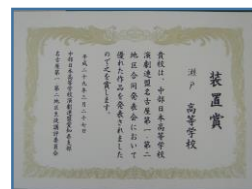 装置賞
瀬戸 高等学校
貴校は、中部日本高等学校
演劇連盟名古屋第一・第二
地区合同発表会において
優れた作品を発表されました
のでこれを賞します。
平成二十九年二月二十七日
中部日本高等学校演劇連盟愛知県支部
名古屋第一・第二地区